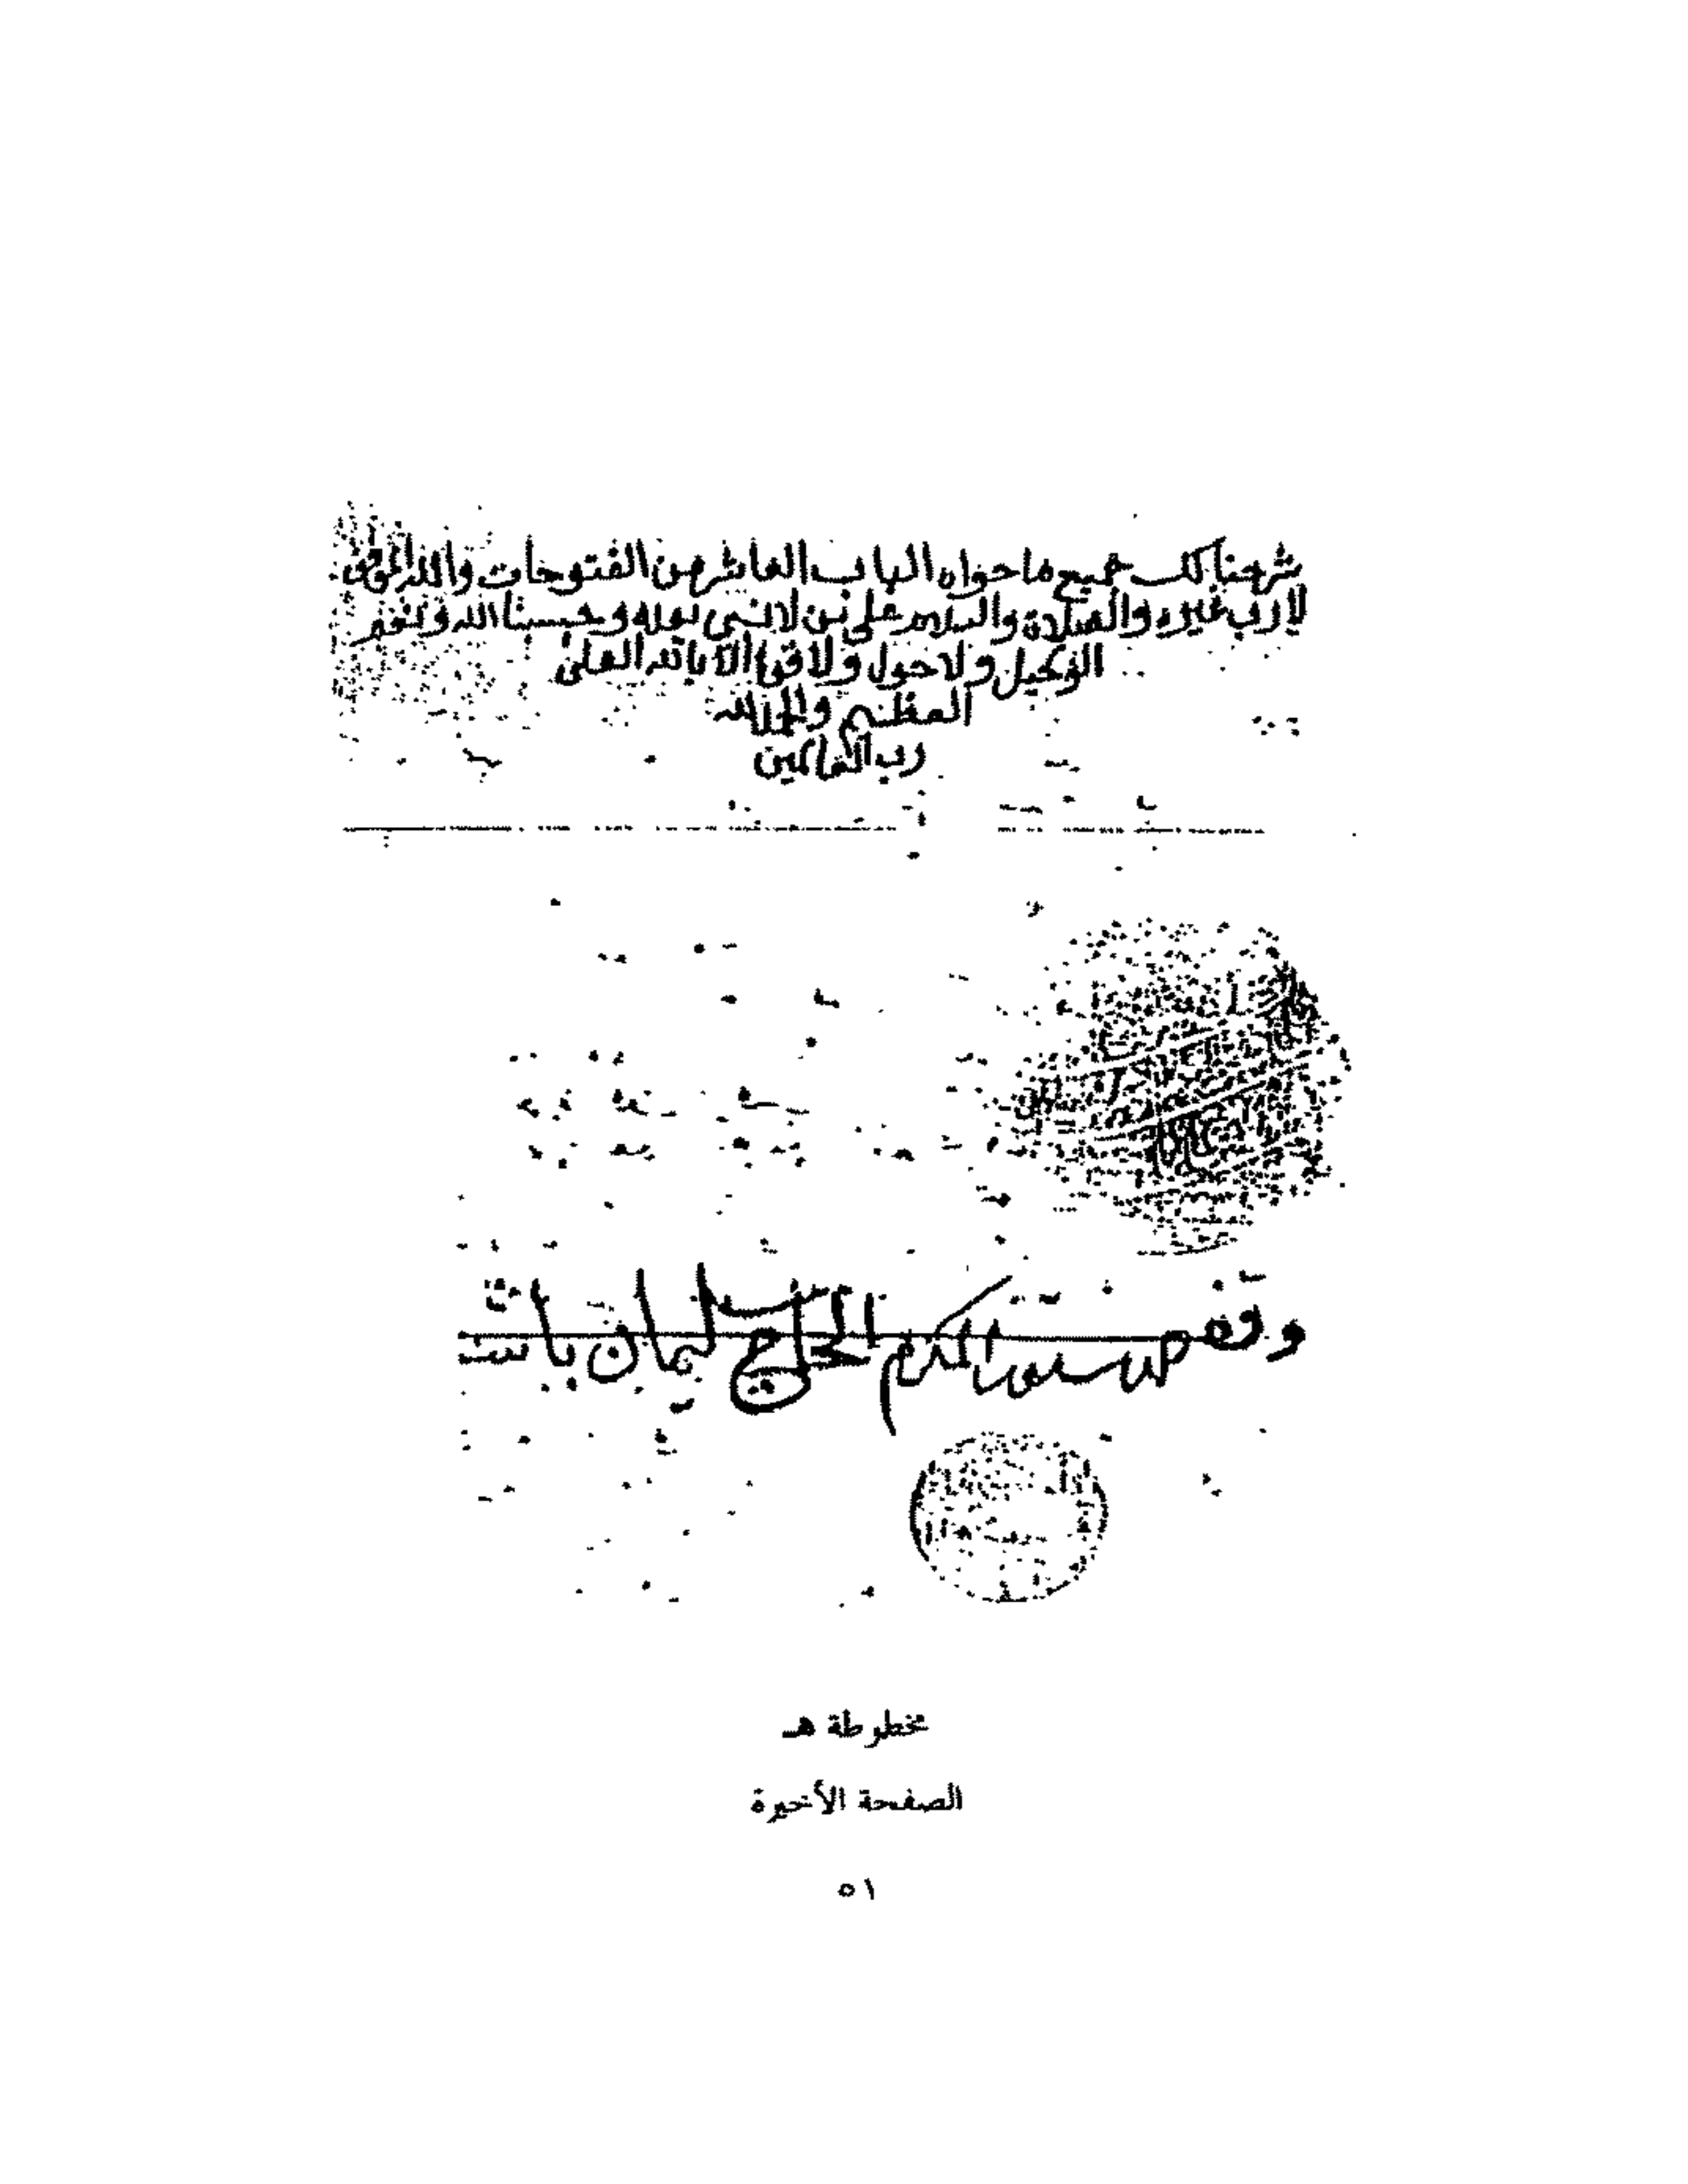 شرحنا لك جميع ما حواه الباب العاشر من الفتوحات والله الموفق
لا رب غيره والصلاة والسلام على من لا نبي بعده وحسبنا الله ونعم
الوكيل ولا حول ولا قوة الا بالله العلى
العظيم والحمد لله
رب العالمين
وقف دستور المكرم الحاج سليمان باشا
مخطوطة هـ
الصفحة الأخيرة
٥١